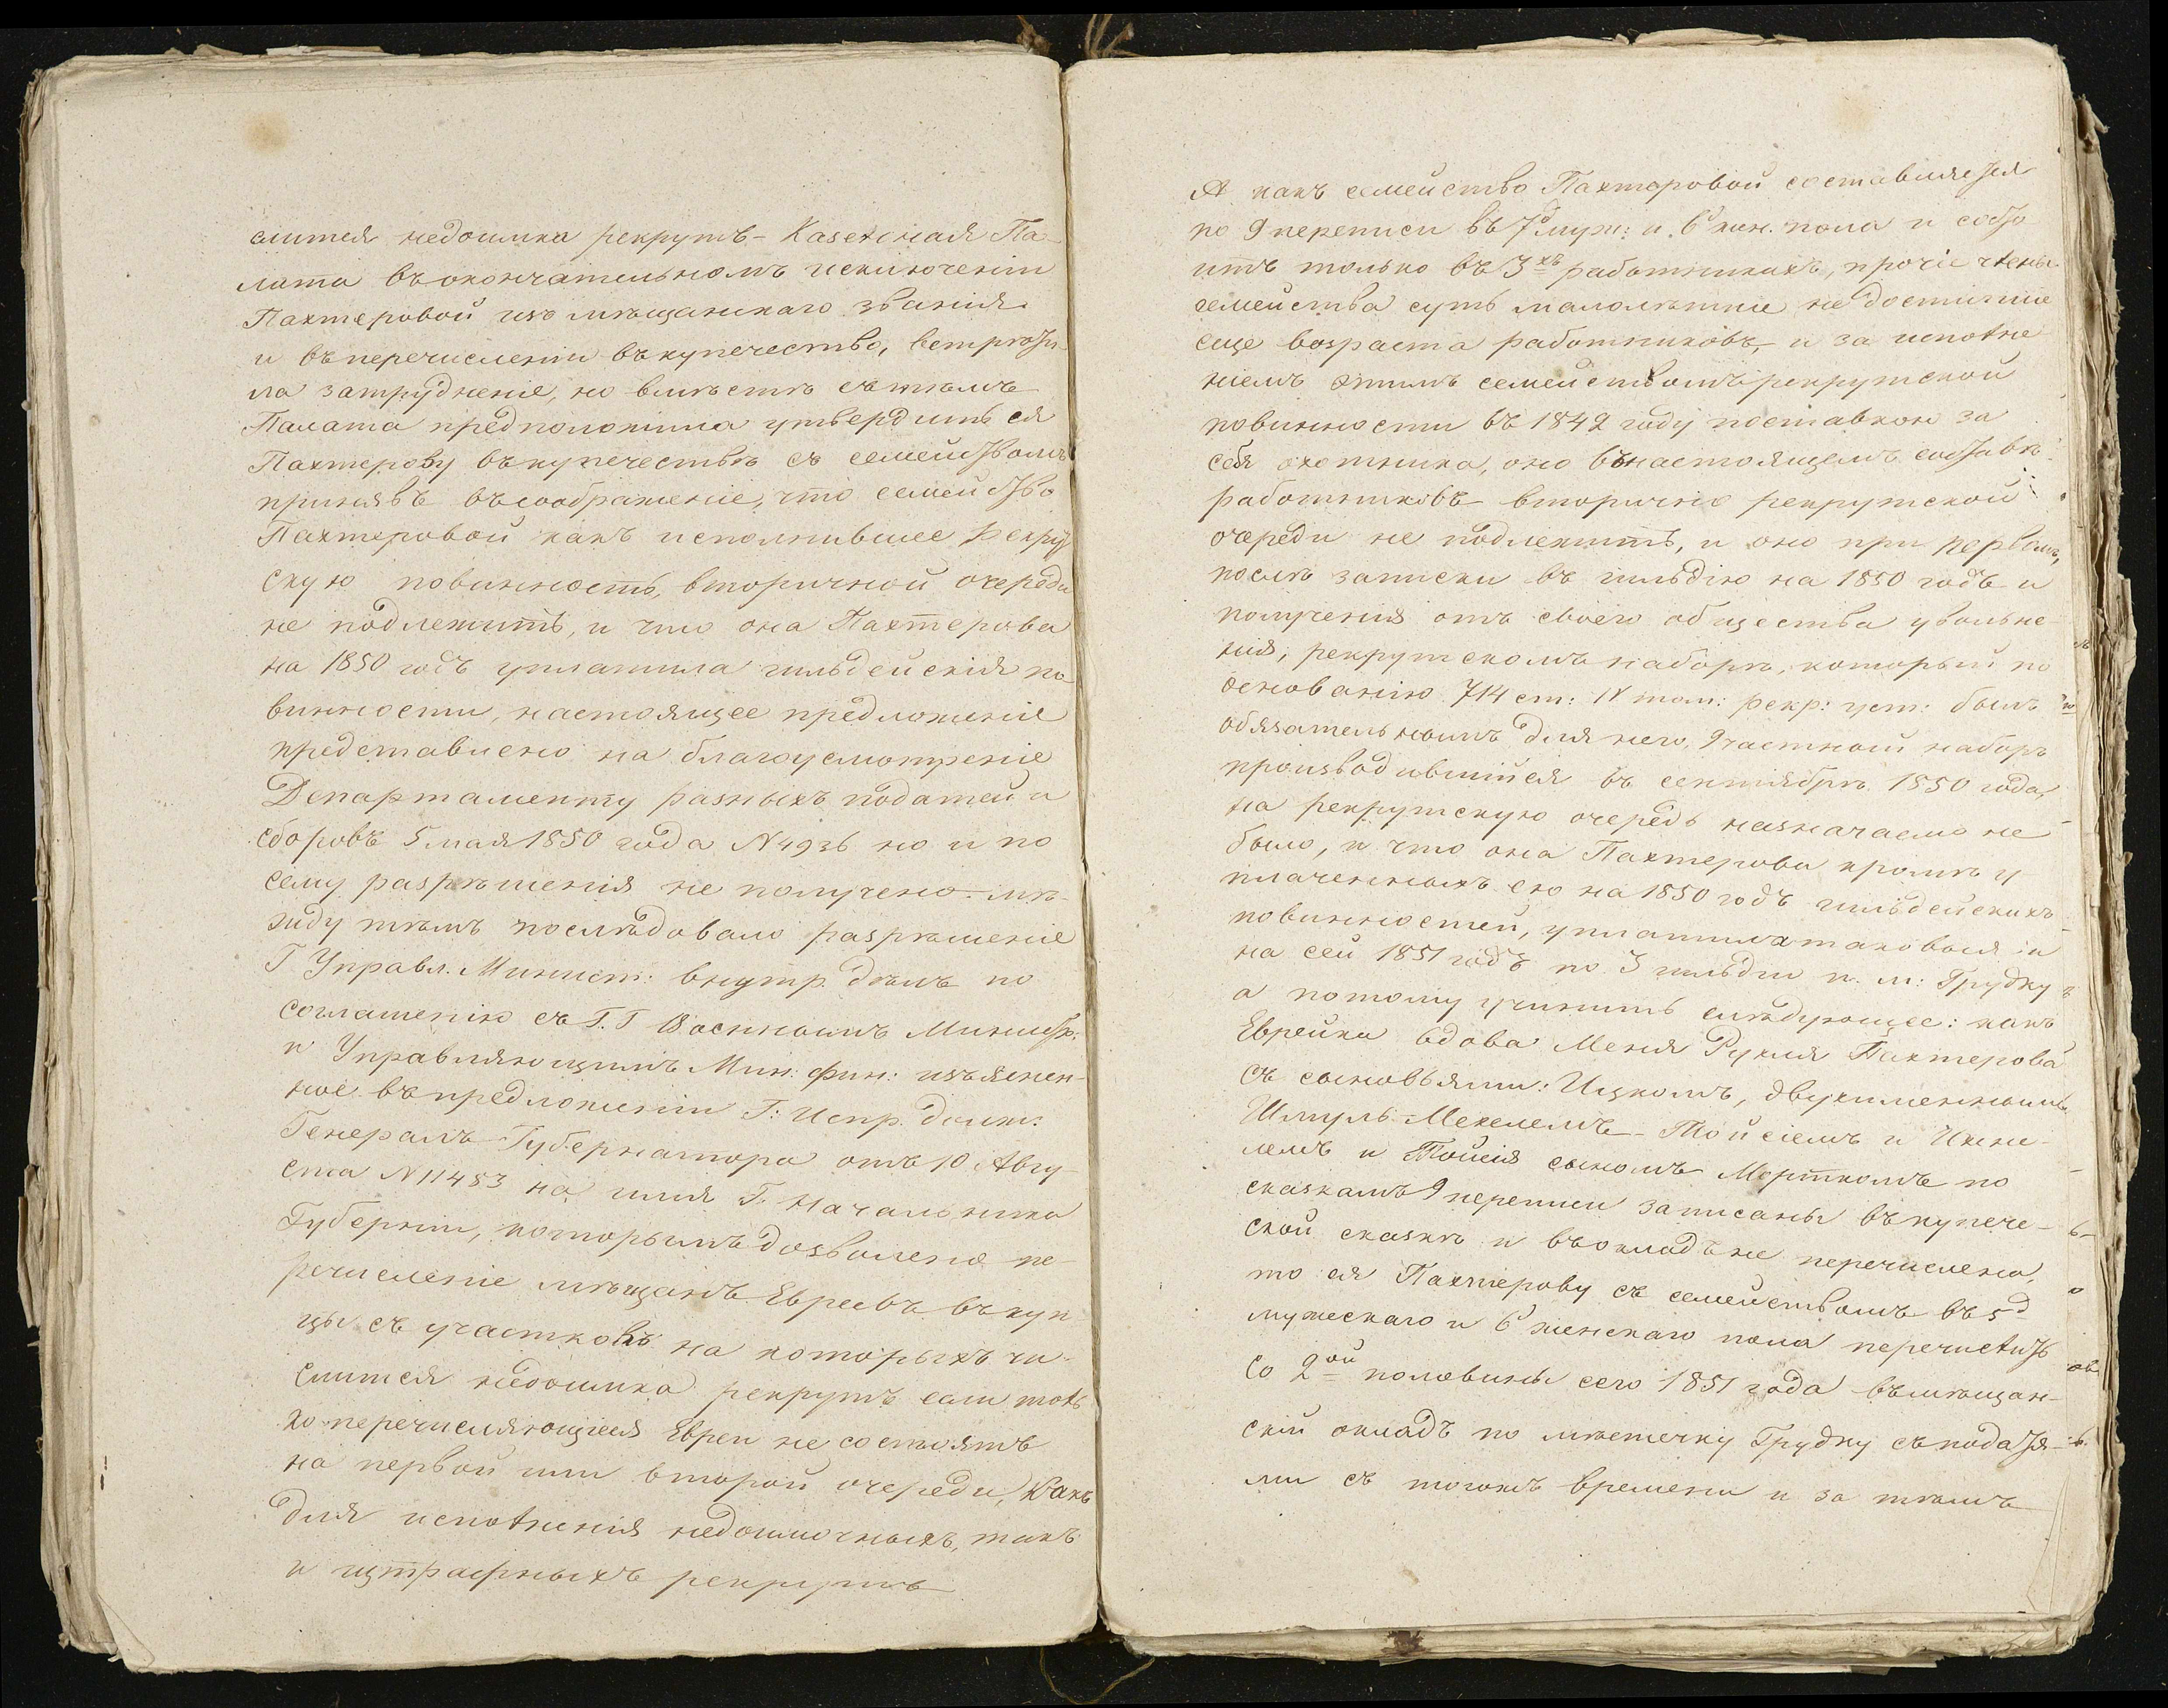 слится недоимка рекрутъ – Казенная Па-
лата въ окончательномъ исключеніи
Пахтеровой изъ мѣщанскаго званія
и въ перечисленіи въ купечество, встрѣти-
ла затрудненіе, но вмѣстѣ съ тѣмъ
Палата предположила утвердить ея
Пахтерову въ купечествѣ съ семействомъ
принявъ въ соображеніе, что семейство
Пахтеровой какъ исполнившее рекрут
скую повинность, вторичной очереди
не подлежитъ, и что она Пахтерова
на 1850 годъ уплатила гильдейскія по-
винности, настоящее предложеніе
представлено на благоусмотреніе
Департаменту разныхъ податей и
сборовъ 5 мая 1850 года N 4936 но и по
сему разрѣшенія не получено. Мѣ-
жду тѣмъ послѣдовало разрѣшеніе
Г Управл. Минист: внутр. дѣлъ по
соглашенію съ Г.Г Военнымъ Министр:
и Управляющимъ Мин: фин: изъяснен-
ное въ предложеніи Г: Испр. долж:
Генералъ Губернатора отъ 10 Авгу-
ста N 11483 на имя Г. Начальника
Губерніи, которымъ дозволено пе-
речисленіе мѣщанъ Евреевъ въ куп
цы съ участковъ на которыхъ чи-
слится недоимка рекрутъ если толь
ко перечисляющіеся Евреи не состоятъ
на первой или второй очереди, какъ
для исполненія недоимочныхъ, такъ
и штрафныхъ рекрутъ
А какъ семейство Пахтеровой составляется
по 9 переписи въ 7 муж: и 6 жен. пола и состо
итъ только въ 3хъ работникахъ, прочіе члены
семейства суть малолѣтние не достигшие
еще возраста работниковъ, и за исполне
ніемъ этимъ семействомъ рекрутской
повинности въ 1849 году поставкою за
себя охотника, оно въ настоящемъ составѣ
работниковъ вторично рекрутской
очереди не подлежитъ, и оно при первомъ,
послѣ записки въ гильдію на 1850 годъ и
полученія отъ своего общества увольне-
нія, рекрутскомъ наборѣ, который по
основанію 714 ст: IV том: рекр: уст: былъ
обязательнымъ для него, 9 частной наборъ
производившійся въ сентябрѣ 1850 года,
на рекрутскую очередь назначаемо не
было, и что она Пахтерова кромѣ у
плаченныхъ ею на 1850 годъ гильдейскихъ
повинностей, уплатила таковыя и
на сей 1851 годъ по 3 гильдіи п. м: Грудку
а потому учинить слѣдующее: какъ
Еврейка вдова Меня Рухля Пахтерова
съ сыновьями: Ицкомъ, двухименнымъ
Шмуль-Мехелемъ – Мойсіемъ и Ихие-
лемъ и Мойсія сыномъ Морткомъ по
сказкамъ 9 переписи записаны въ купече-
ской сказкѣ и въ окладъ не перечислена,
то ея Пахтерову съ семействомъ въ 5д
мужескаго и 6 женскаго пола перечислить
со 2ой половины сего 1851 года въ мѣщан-
скій окладъ по мѣстечку Грудку съ податя-
ми съ тогожъ времени и за тѣмъ